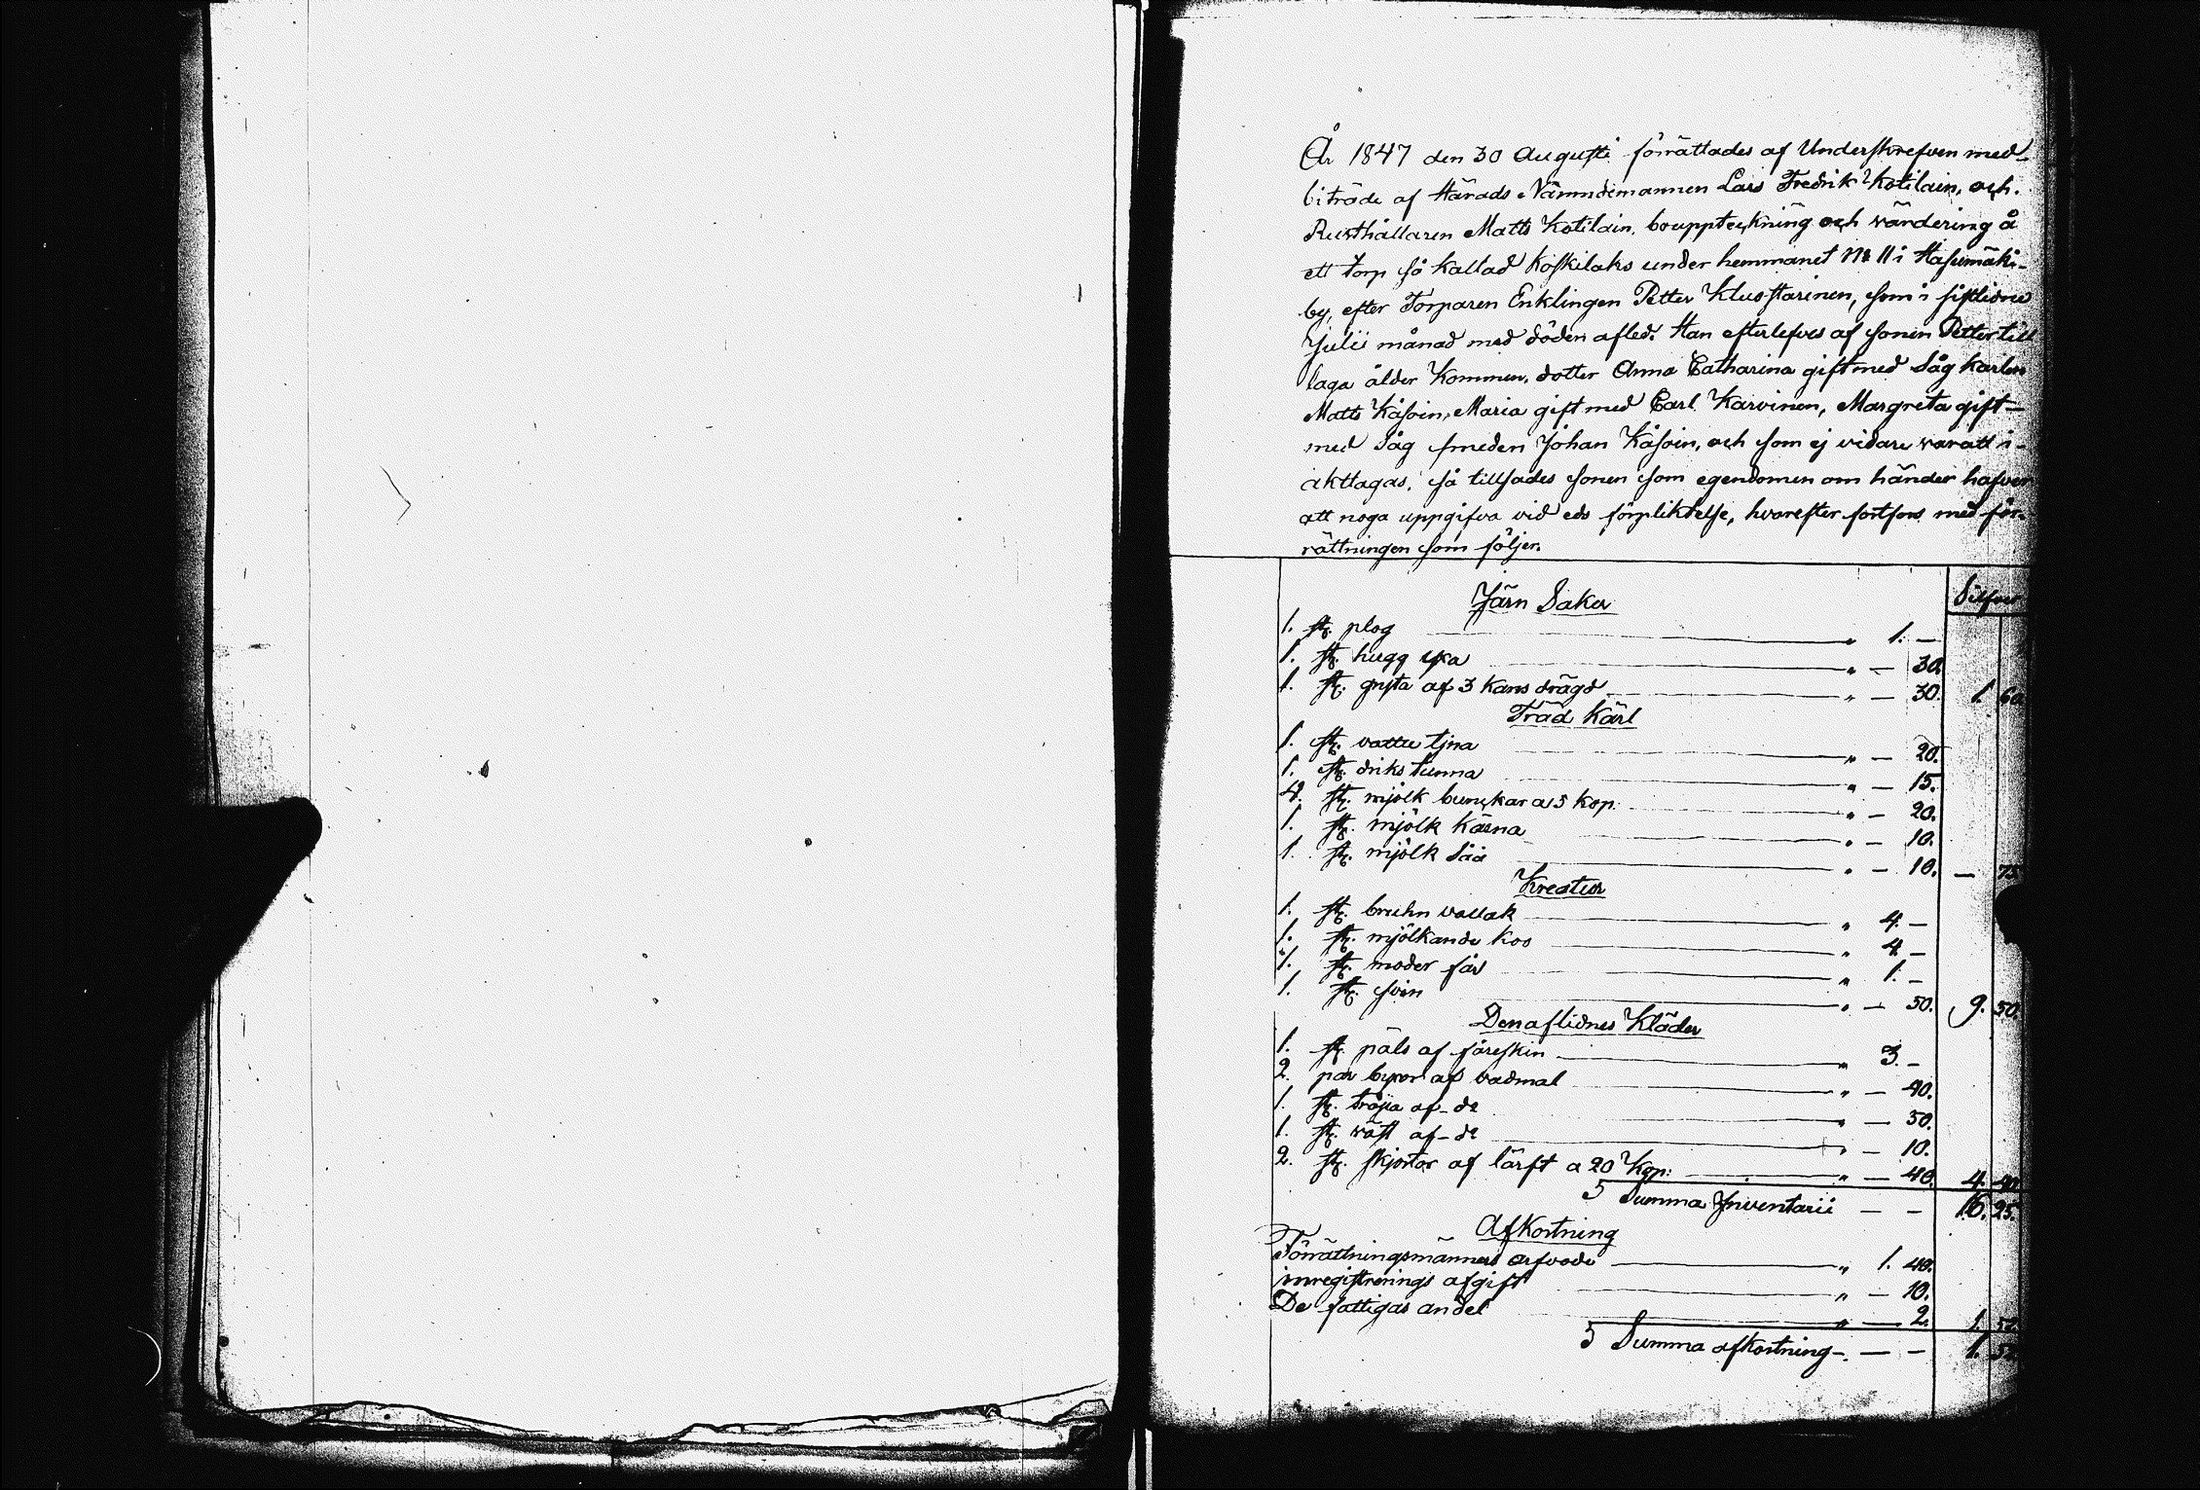 År 1847 den 30 Augusti förrättades af Underskrefven med
biträde af Härads Nämndemannen Lars Fredrik Kotilain, och
Rusthållaren Matts Kotilain, bouppteckning och värdering å
ett torp så kallad Koskilaks under hemmanet No 11 i Hasumäki
by, efter Torparen Enklingen Petter Klus starinen, som i sistlidne
Julii månad med döden afled. Han efterlefves af sonen Petter till
laga ålder kommen, dotter Anna Catharina gift med Såg karlen
Matts Kåsoin, Maria gift med Carl Karvinen, Margreta gift
med Såg smeden Johan Kåsoin, och som ej vidare var att i-
akttagas, så tillsades sonen som egendomen om händer hafver
att noga uppgifva vid eds förpliktelse, hvarefter fortfors med för-
rättningen som följer.
Silfver
Järn Saker
1. st. plog " 1. —
1. st. hugg yxa " — 30.
1. st. gryta af 3 kans drägd " — 30. 1. 60
Träd Kärl
1. st. vattu tjna " — 20.
1. st. driks tunna " — 15.
4. st. mjölk bunckar a 5 kop. " — 20.
1. st. mjölk kärna " — 10.
1. st. mjölk såå " — 10. — 75
Kreatur
1. st. bruhn vallak " 4. —
1. st. mjölkande koo " 4 —
1. st. moder får " 1. —
1. st. svin " — 50. 9. 50.
Den aflidnes Kläder
1. st. päls af fårskin " 3. —
2. par byxor af vadmal " — 40.
1. st. tröja af do " — 50.
1. st. väst af do " — 10.
2. st. skjortor af lärft a 20 Kop: " — 40. 4. 40
S Summa Inventarii — — 16. 25.
Afkortning
Förrättningsmännens arfvode " 1. 40.
inregistrerings afgift " — 10.
De fattigas andel " — 2. 1. 52
S Summa afkortning — — 1. 52